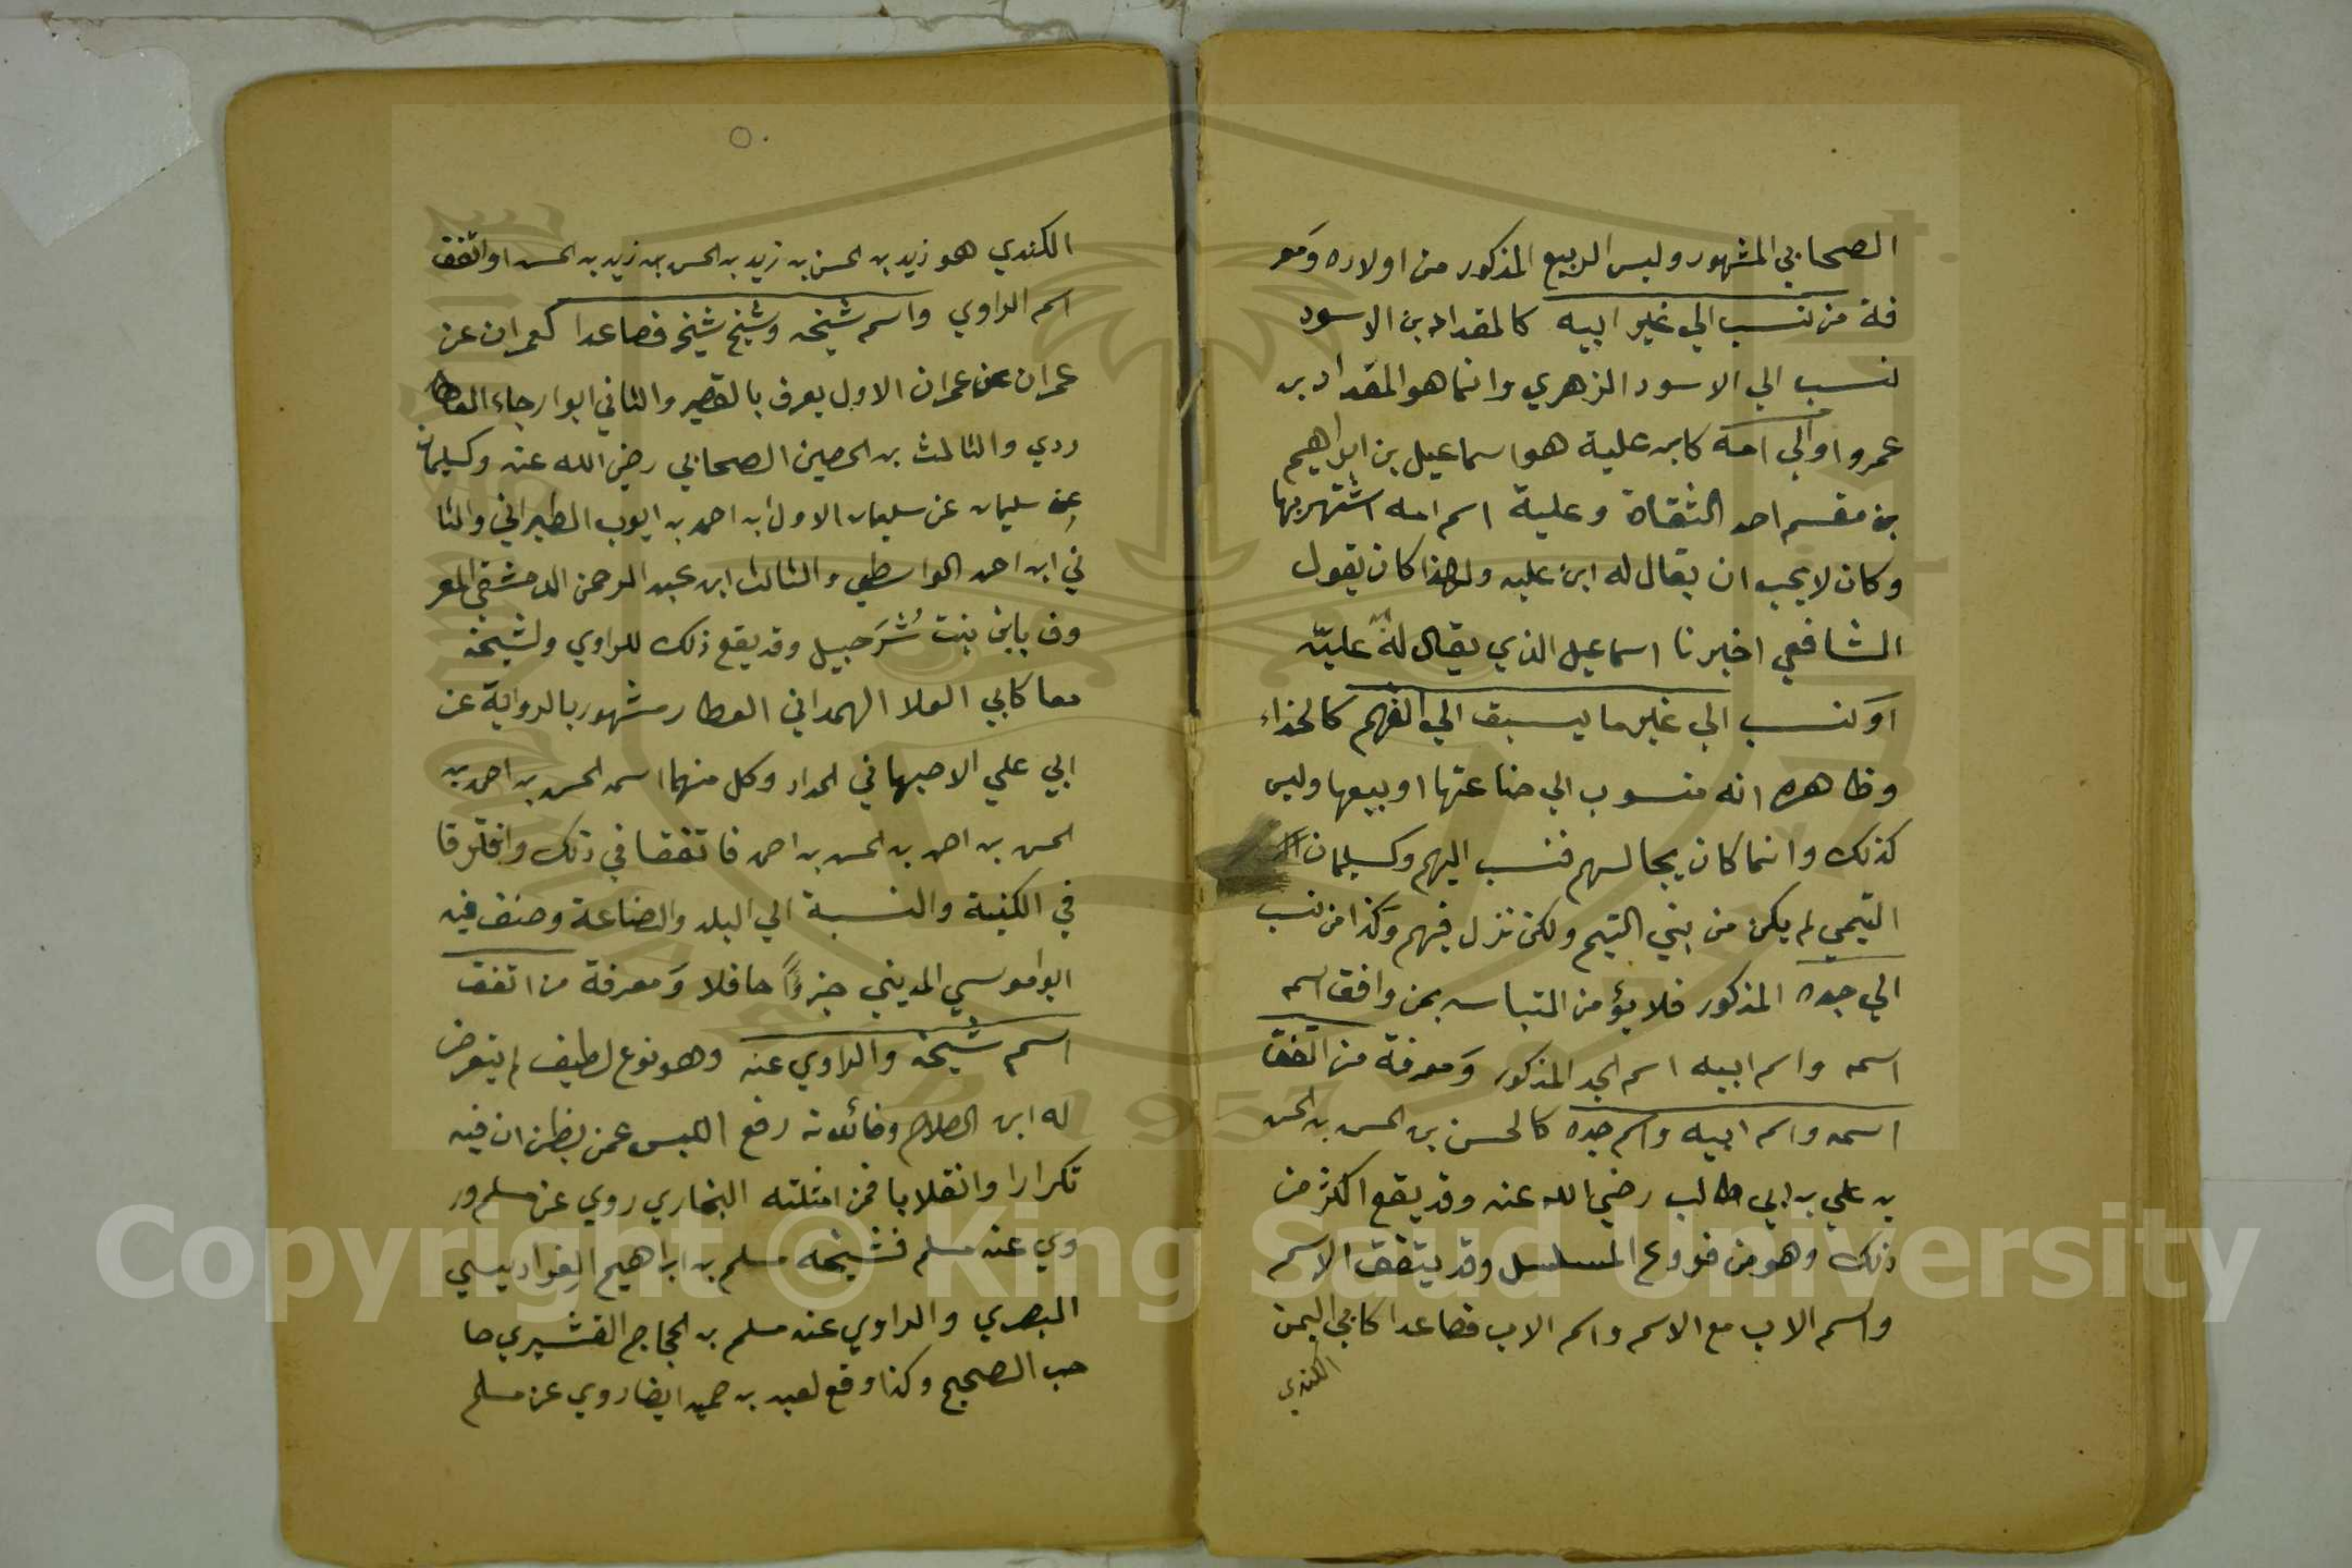 الصحابي المشهور وليس الربيع المذكور من اولاده ومعر
فة من نسب الي غير ابيه كالمقداد بن الاسود
نسب الي الاسود الزهري وانما هو المقداد بن
عمرو او الي امه كابن علية هو اسماعيل بن ابراهيم
بن مقسم احد الثقاة وعلية اسم امه اشتهر بها
وكان لا يحب ان يقال له ابن عليه ولهذا كان يقول
الشافعي اخبرنا اسماعيل الذي يقال له علية
او نسب الي غير ما يسبق الي الفهم كالحذاء
وظاهره انه منسوب الي صناعتها او بيعها وليس
كذلك وانما كان يجالسهم فنسب اليهم وكسليمان
التيمي لم يكن من بني التيم ولكن نزل فيهم وكذا من نسب
الي جده المذكور فلا يؤمن التباسه بمن وافق اسمه
اسمه واسم ابيه اسم الجد المذكور ومعرفة من اتفق
اسمه واسم ابيه واسم جده كالحسن بن الحسن بن الحسن
بن علي بن ابي طالب رضي الله عنه وقد يقع اكثر من
ذلك وهو من فروع المسلسل وقد يتفق الاسم
واسم الاب مع الاسم واسم الاب فصاعدا كابي اليمن
الكندي
٥٠
الكندي هو زيد بن الحسن بن زيد بن الحسن بن زيد بن الحسن او اتفق
اسم الراوي واسم شيخه وشيخ شيخه فصاعدا كعمران عن
عمران عن عمران الاول يعرف بالقصير والثاني ابوا رجاء العطا
ردي والثالث بن الحصين الصحابي رضي الله عنه وكسليمان
عن سليمان عن سليمان الاول ابن احمد بن ايوب الطبراني والثا
ني ابن احمد الواسطي والثالث ابن عبد الرحمن الدمشقي المعر
وف بابن بنت شرحبيل وقد يقع ذلك للراوي ولشيخه
معا كابي العلا الهمداني العطار مشهور بالرواية عن
ابي علي الاصبهاني الحداد وكل منهما اسمه الحسن بن احمد بن
الحسن بن احمد بن الحسن بن احمد فاتفقا في ذلك وافترقا
في الكنية والنسبة الي البلد والصناعة وصنف فيه
ابوا موسي المديني جزءا حافلا ومعرفة من اتفق
اسم شيخه والراوي عنه وهو نوع لطيف لم يتعرض
له ابن الصلاح وفائدته رفع اللبس عمن يظن ان فيه
تكرارا وانقلابا فمن امثلته البخاري روي عن مسلم ور
وي عنه مسلم فشيخه مسلم بن ابراهيم الفراديسي
البصري والراوي عنه مسلم بن الحجاج القشيري صا
حب الصحيح وكذا وقع لعبد بن حميد ايضا روي عن مسلم
Copyright © King Saud University
1957